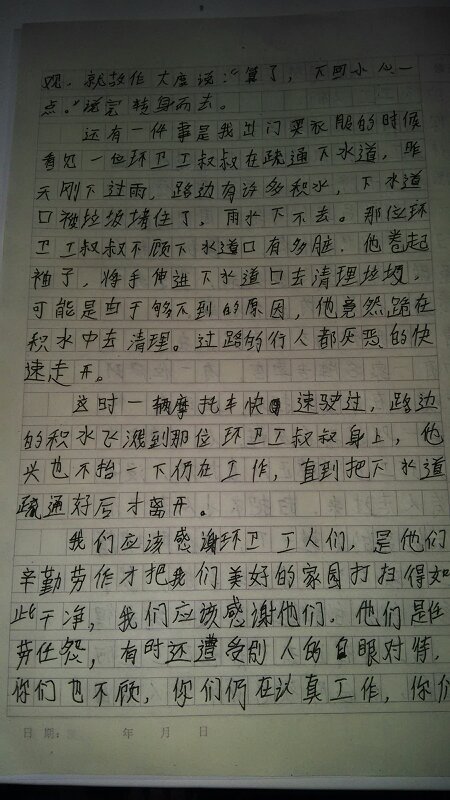 娘，就故作大度说：“算了，下回小心一
点。”说完转身而去。
还有一件事是我出门买衣服的时候
看见一位环卫工叔叔在疏通下水道，昨
天刚下过雨，路边有许多积水，下水道
口被垃圾堵住了，雨水下不去。那位环
卫工叔叔不顾下水道口有多脏，他卷起
袖子，将手伸进下水道口去清理垃圾，
可能是由于够不到的原因，他竟然跪在
积水中去清理。过路的行人都厌恶的快
速走开。
这时一辆摩托车快速驶过，路边
的积水飞溅到那位环卫工叔叔身上，他
头也不抬一下仍在工作，直到把下水道
疏通好后才离开。
我们应该感谢环卫工人们，是他们
辛勤劳作才把我们美好的家园打扫得如
此干净，我们应该感谢他们，他们是任
劳任怨，有时还遭受别人的白眼对待，
你们也不顾，你们仍在认真工作，你们
日期： 年 月 日